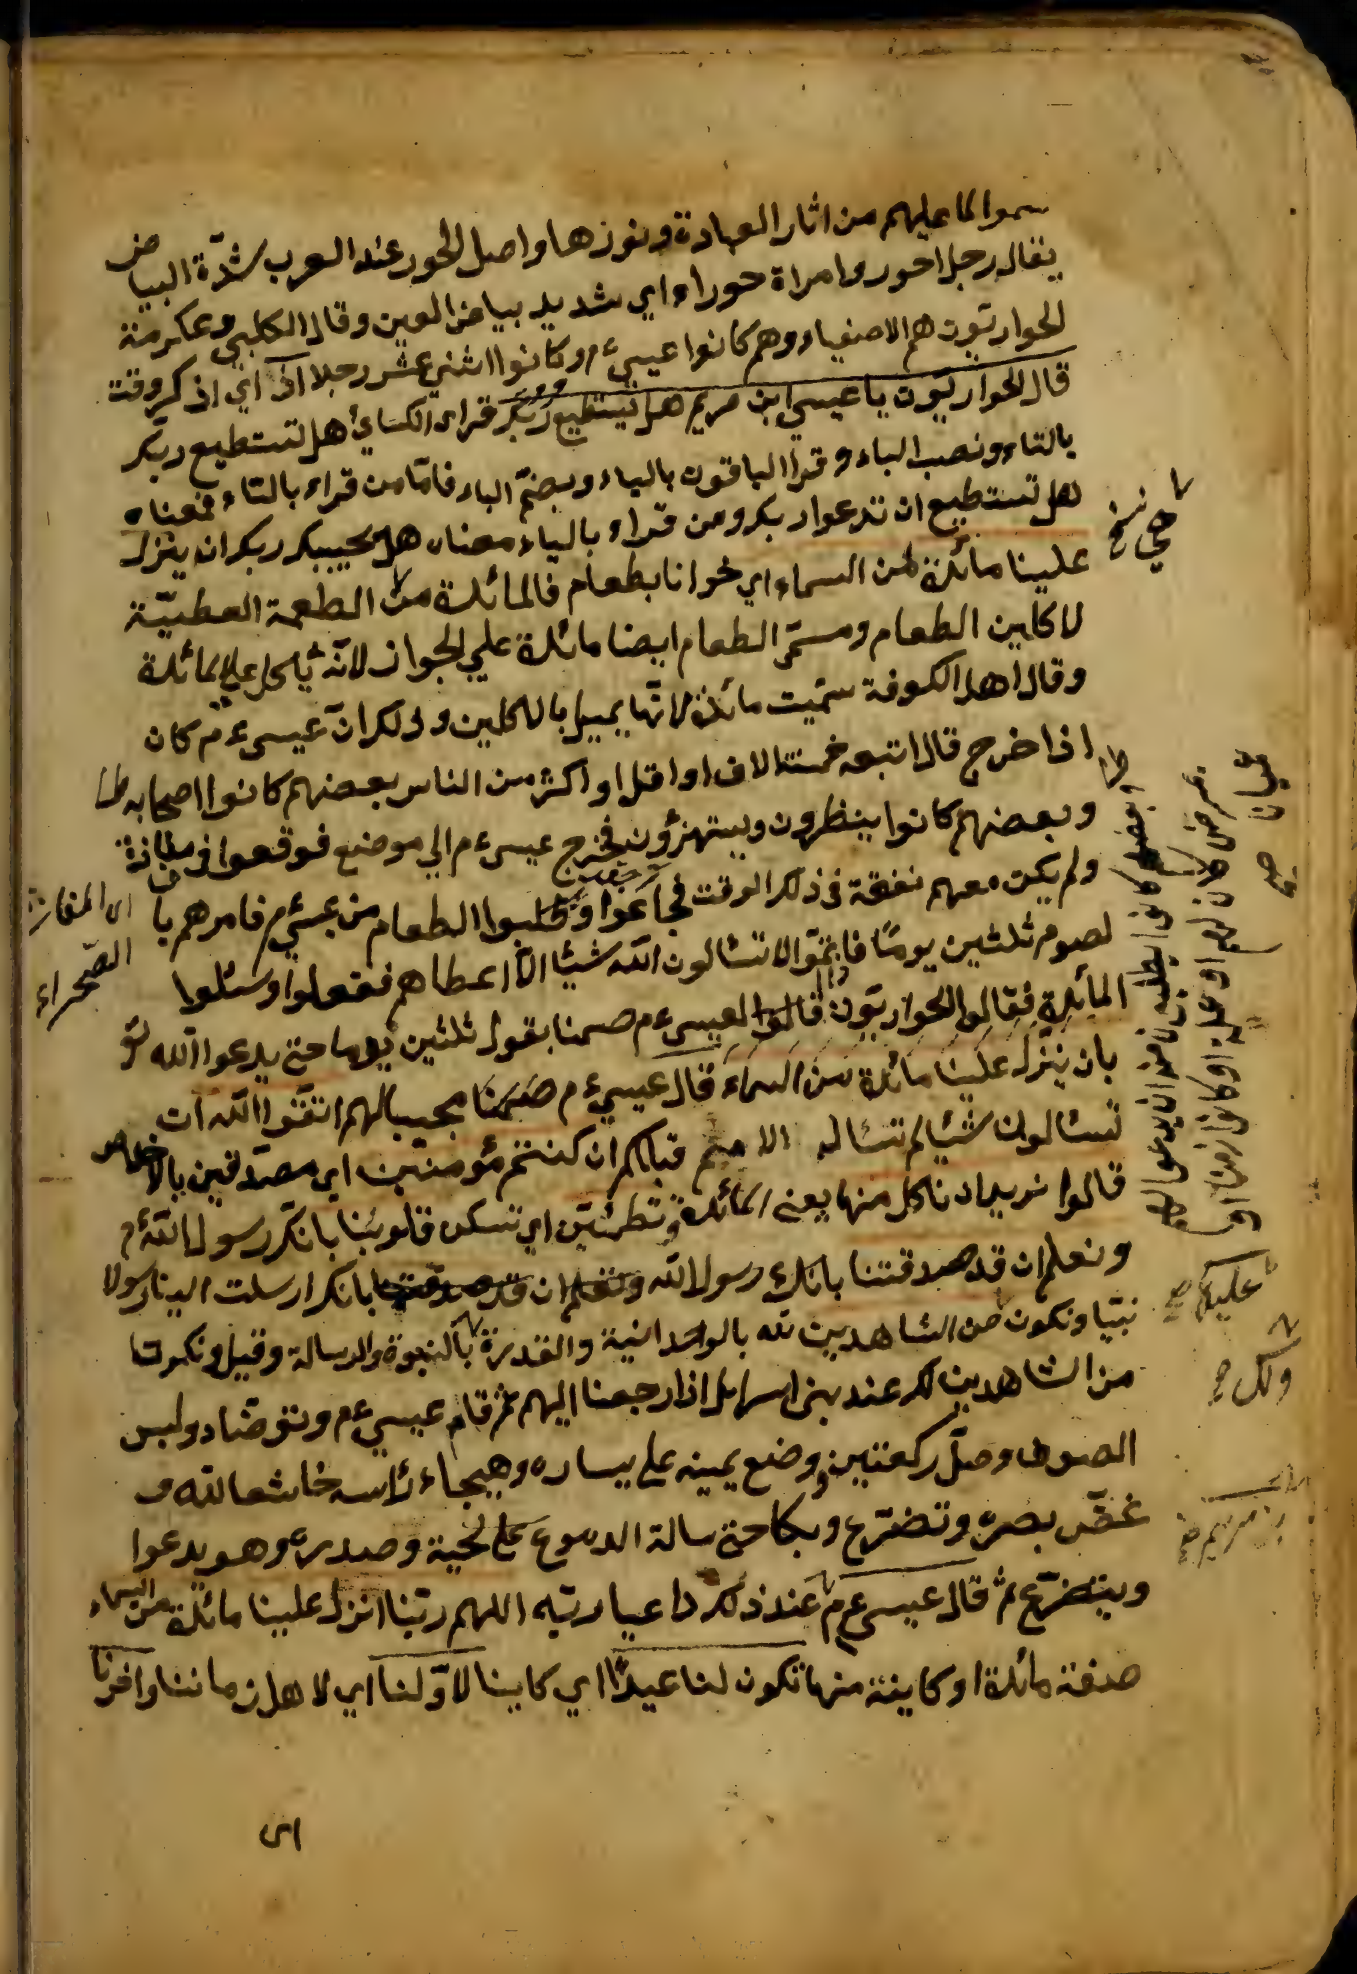 سموا لما عليهم من اثار العبادة ونورها واصل الحور عند العرب شدّة البياض
يقال رجل احور وامراة حوراء اي شديد بياض العين وقال الكلبي وعكرمة
الحواريّون هم الاصفياء وهم كانوا عيسيءم وكانوا اثني عشر رجلا اذ اي اذكر وقت
قال الحواريّون يا عيسي ابن مريم هل يستطيع ربّك قراء الكسائي هل تستطيع ربّك
بالتاء ونصب الباء وقرا الباقون بالياء وبضمّ الباء فامّا من قراء بالتاء فمعناه
هل تستطيع ان تدعوا ربك ومن قراء بالياء معناه هل يجيبك ربك ان ينزل
علينا مائدة من السماء اي خوانا بطعام فالمائدة من الطعمة المعطيّة
لاكلين الطعام ومسمّي الطعام ايضا مائدة علي الجواز لانّه ياكل علي المائدة
وقال اهل الكوفة سمّيت مائدة لانّها يميل بالاكلين وذلك انّ عيسيءم كان
اذا خرج قال اتبعه خمسة الاف او اقل او اكثر من الناس بعضهم كانوا اصحابه
وبعضهم كانوا ينظرون ويستهزؤن فخرج عيسيءم الي موضع فوقعوا في مفازة
ولم يكن معهم نفقة في ذلك الوقت فجاعوا وطلبوا الطعام من عيسيءم فامرهم با
لصوم ثلثين يومًا فاتمّوا لا تسالون اللّه شيئا الّا اعطاهم ففعلوا وسئلوا
المائدة فقالوا الحواريّون قالوا لعيسيءم صمنا بقول ثلثين يوما حتي يدعوا اللّه
بان ينزل علينا مائدة من السماء قال عيسيءم مجيبا لهم اتقوا اللّه ان
تسالون شيئا لم تساله الامم قبلكم ان كنتم مؤمنين اي مصدّقين بالاخلاص
قالوا نريد ان ناكل منها يعني المائدة وتطمئنّ اي تسكن قلوبنا بانّك رسول اللّه
ونعلم ان قد صدقتنا بانك رسول اللّه بانك ارسلت الينا رسولا
نبيّا ونكون من الشاهدين للّه بالواحدانية والقدرة بالنبوة والرسالة وقيل ونكون
من الشاهدين لك عند بني اسرايل اذا رجعنا اليهم ثم قام عيسيءم وتوضّاء ولبس
الصوف وصلّ ركعتين ووضع يمينه علي يساره رئاسه خاشعا للّه و
غضّ بصره وتضرّع وبكا حتي سالة الدموع علي لحية وصدره وهو يدعوا
ويتضرّع ثم قال عيسيءم عند ذلك داعيا ربّه اللهم ربّنا انزل علينا مائدة من السماء
صفة مائدة او كاينة منها تكون لنا عيدًا اي كاينا لاوّلنا اي لاهل زماننا واخرنا
اي المفازة
الصّحراء
عليكم صح
ولك صح
ابن مريم صح
اي